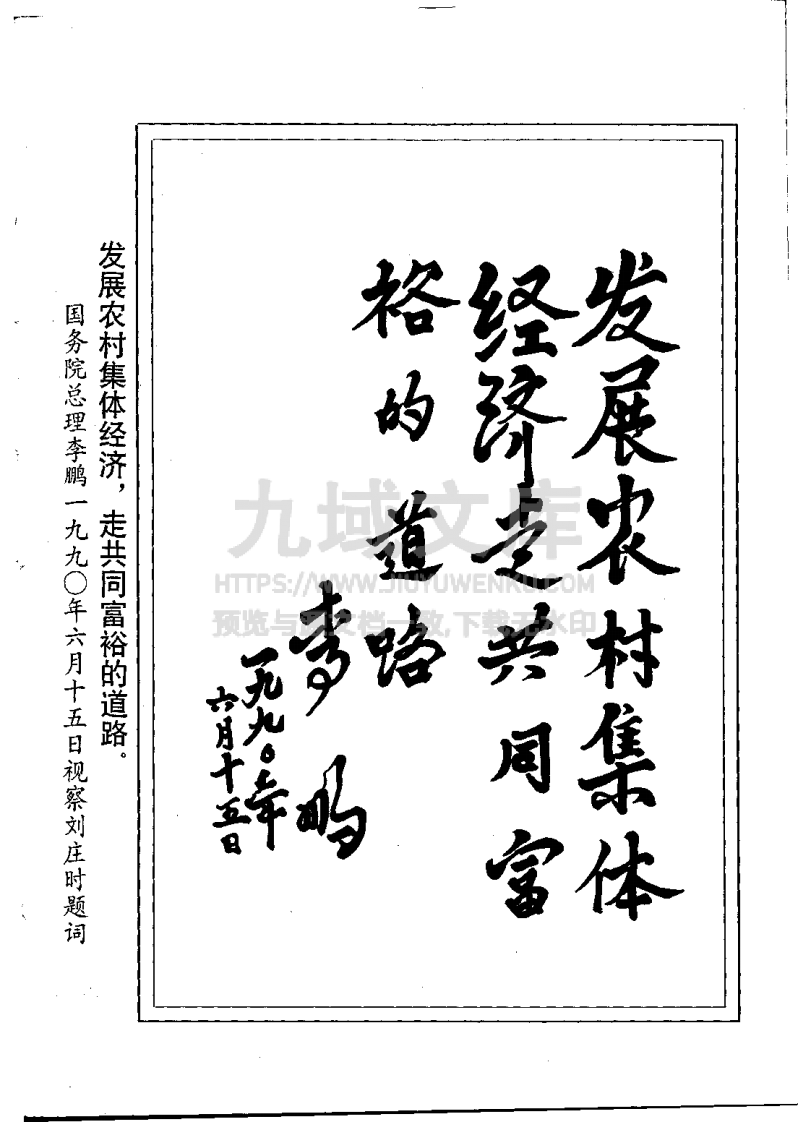 发展农村集体
经济走共同富
裕的道路
李鹏
一九九〇年
六月十五日
发展农村集体经济，走共同富裕的道路。
国务院总理李鹏一九九〇年六月十五日视察刘庄时题词
九域文库
HTTPS://WWW.JIUYUWENKU.COM
预览与源文档一致,下载无水印